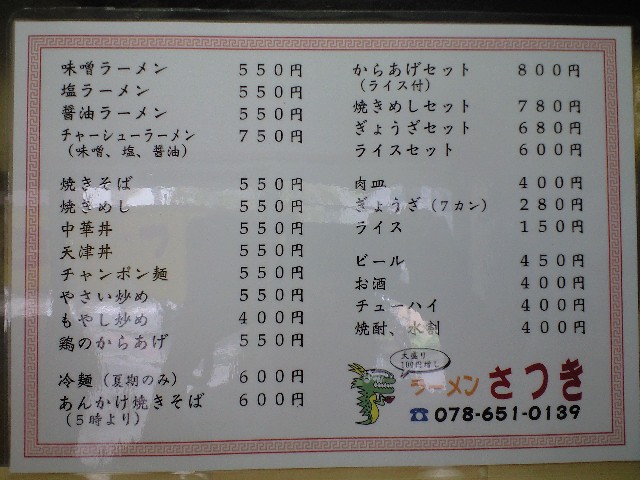 味噌ラーメン 550円
塩ラーメン 550円
醤油ラーメン 550円
チャーシューラーメン 750円
(味噌、塩、醤油)
焼きそば 550円
焼きめし 550円
中華丼 550円
天津丼 550円
チャンポン麺 550円
やさい炒め 550円
もやし炒め 400円
鶏のからあげ 550円
冷麺(夏期のみ) 600円
あんかけ焼きそば 600円
(5時より)
からあげセット 800円
(ライス付)
焼きめしセット 780円
ぎょうざセット 680円
ライスセット 600円
肉皿 400円
ぎょうざ(7カン) 280円
ライス 150円
ビール 450円
お酒 400円
チューハイ 400円
焼酎、水割 400円
大盛り
100円増し
ラーメン さつき
☎078-651-0139